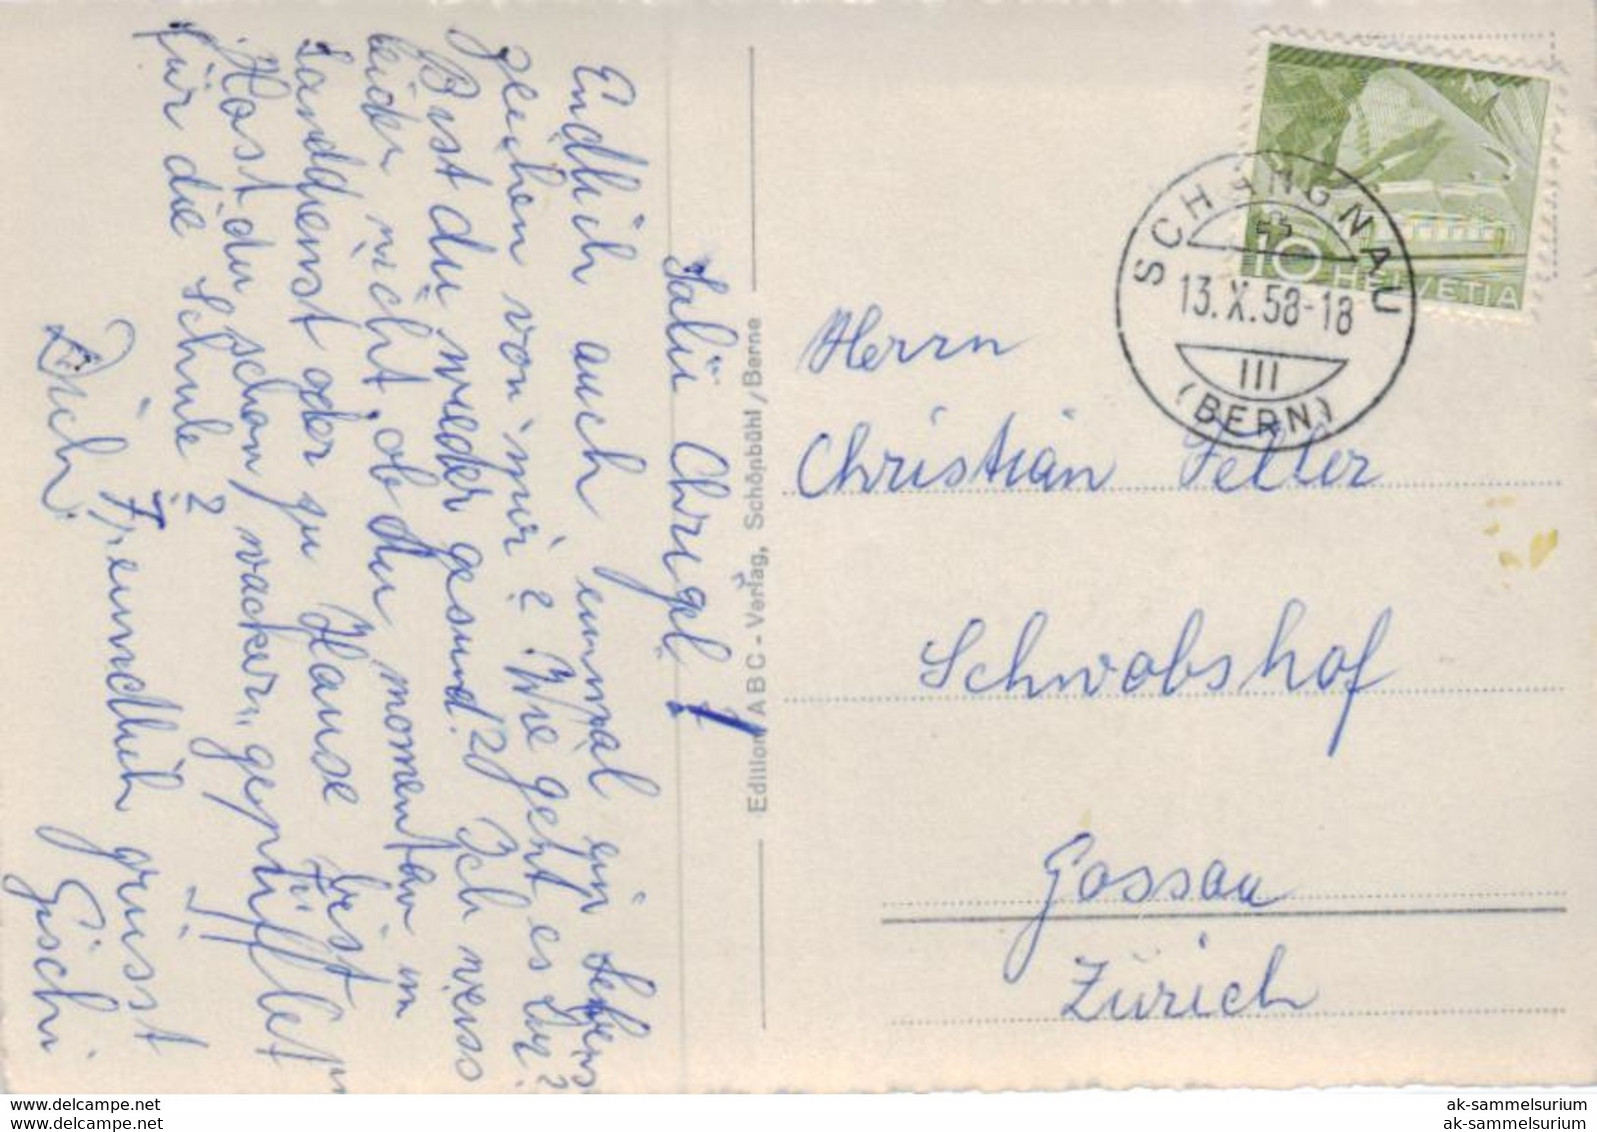 Salü Chrigel!
Endlich auch einmal ein Lebens-
zeichen von mir? Wie geht es Dir?
Bist du wieder gesund? Ich weiss
leider nicht, ob du momentan im
Landdienst oder zu Hause bist.
Hast du schon „wacker“ gepüfflet
für die Schule?
Freundlich grüsst
Dich
Gischi
Edition ABC - Verlag, Schönbühl/Berne
HELVETIA
10
SCHANGNAU
13.X.58-18
III
(BERN)
Herrn
Christian Feller
Schwobshof
Gossau
Zürich
www.delcampe.net
ak-sammelsurium
ak-sammelsurium